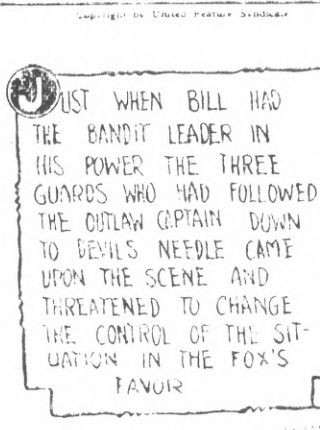 Copyright by United Feature Syndicate
JUST WHEN BILL HAD
THE BANDIT LEADER IN
HIS POWER THE THREE
GUARDS WHO HAD FOLLOWED
THE OUTLAW CAPTAIN DOWN
TO DEVILS NEEDLE CAME
UPON THE SCENE AND
THREATENED TO CHANGE
THE CONTROL OF THE SIT-
UATION IN THE FOX'S
FAVOR